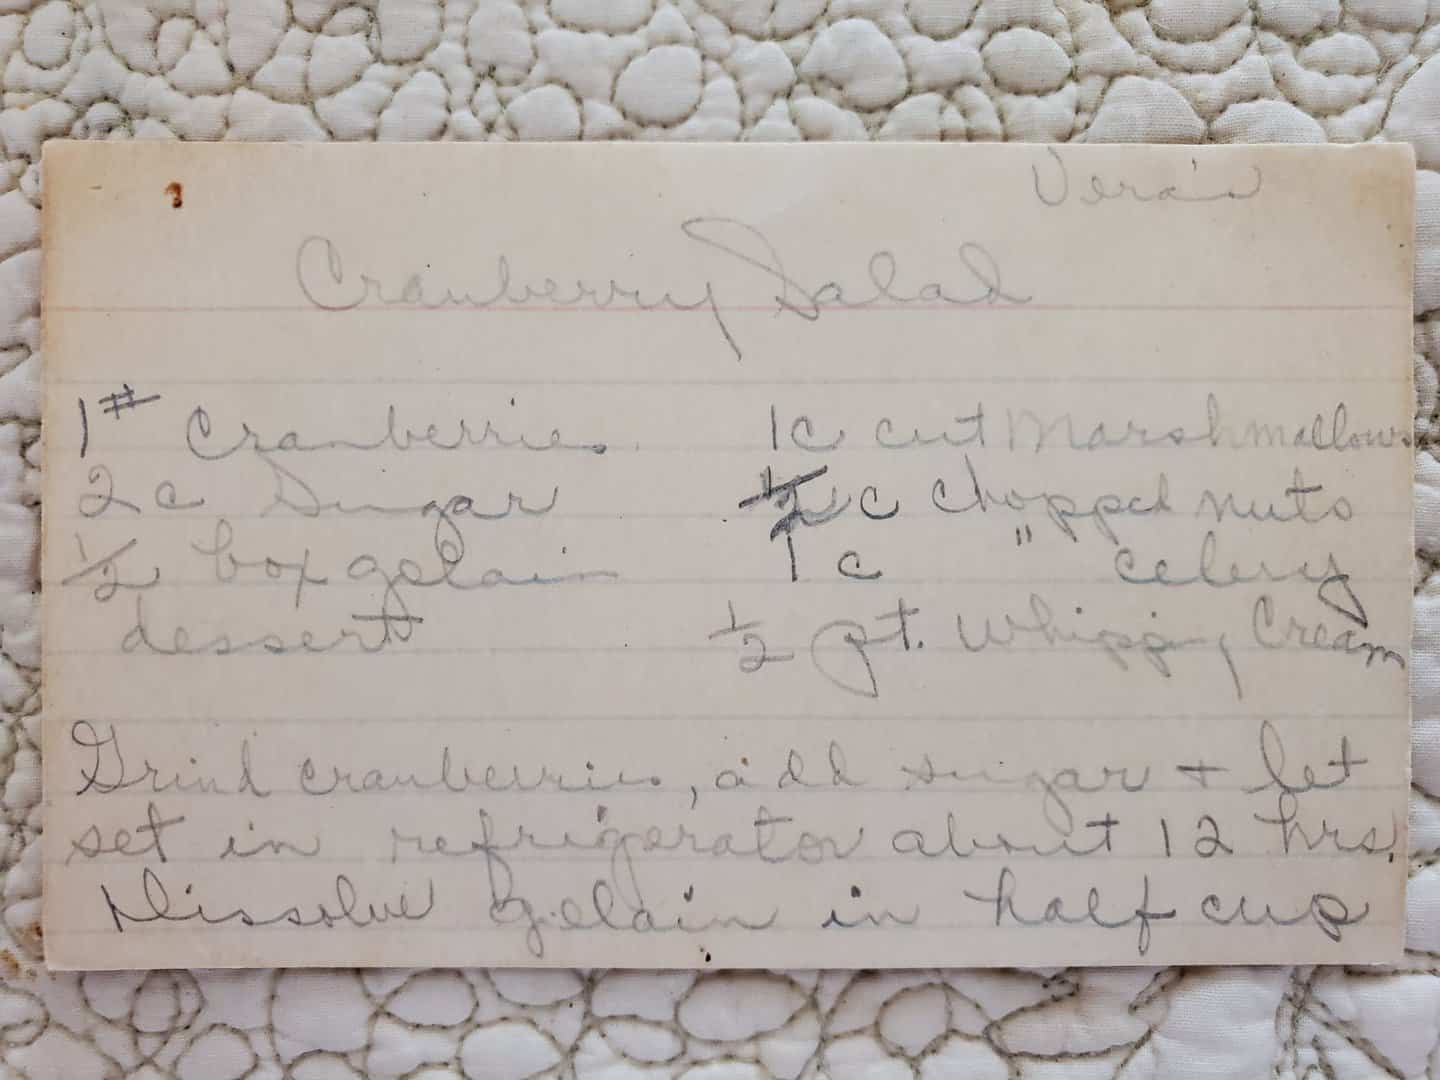 Vera's
Cranberry Salad
1# Cranberries
2 c Sugar
1/2 box gelain
dessert
1c cut Marshmallows
1/2 c chopped nuts
1 c " celery
1/2 pt. Whipping Cream
Grind cranberries, add sugar + let
set in refrigerator about 12 hrs.
Dissolve gelain in half cup